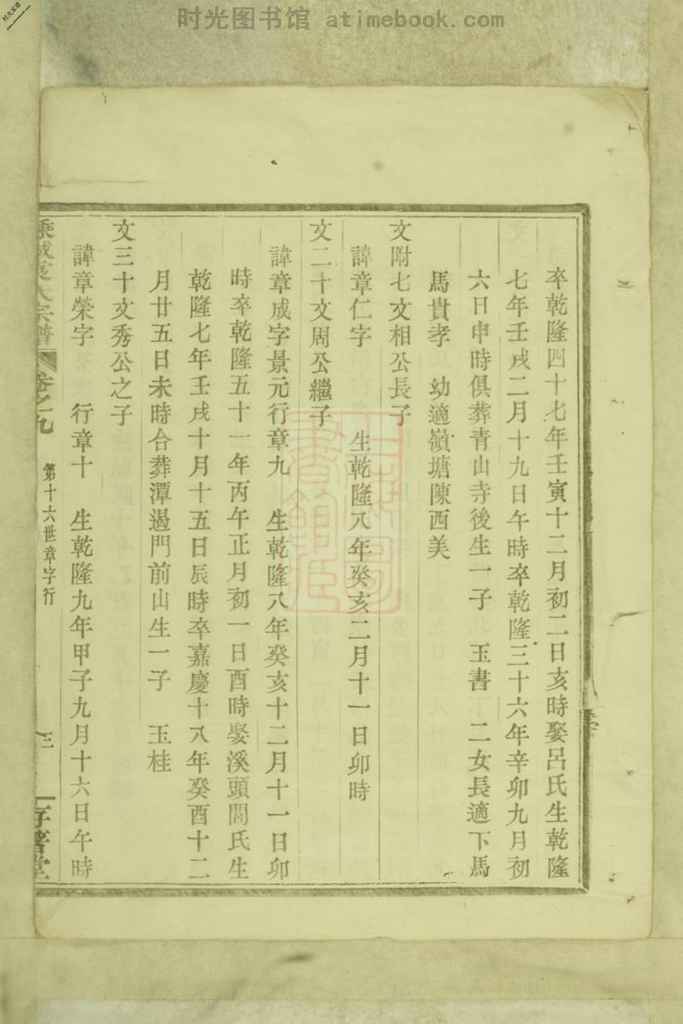 时光图书馆 atimebook.com
卒乾隆四十七年壬寅十二月初二日亥時娶呂氏生乾隆
七年壬戌二月十九日午時卒乾隆三十六年辛卯九月初
六日申時俱葬青山寺後生一子 玉書 二女長適下馬
馬貴孝 幼適嶺塘陳西美
文附七文相公長子
諱章仁字 生乾隆八年癸亥二月十一日卯時
文二十文周公繼子
諱章成字景元行章九 生乾隆八年癸亥十二月十一日卯
時卒乾隆五十一年丙午正月初一日酉時娶溪頭閻氏生
乾隆七年壬戌十月十五日辰時卒嘉慶十八年癸酉十二
月廿五日未時合葬潭過門前山生一子 玉桂
文三十文秀公之子
諱章榮字 行章十 生乾隆九年甲子九月十六日午時
宗譜 卷之九 第十六世章字行 三